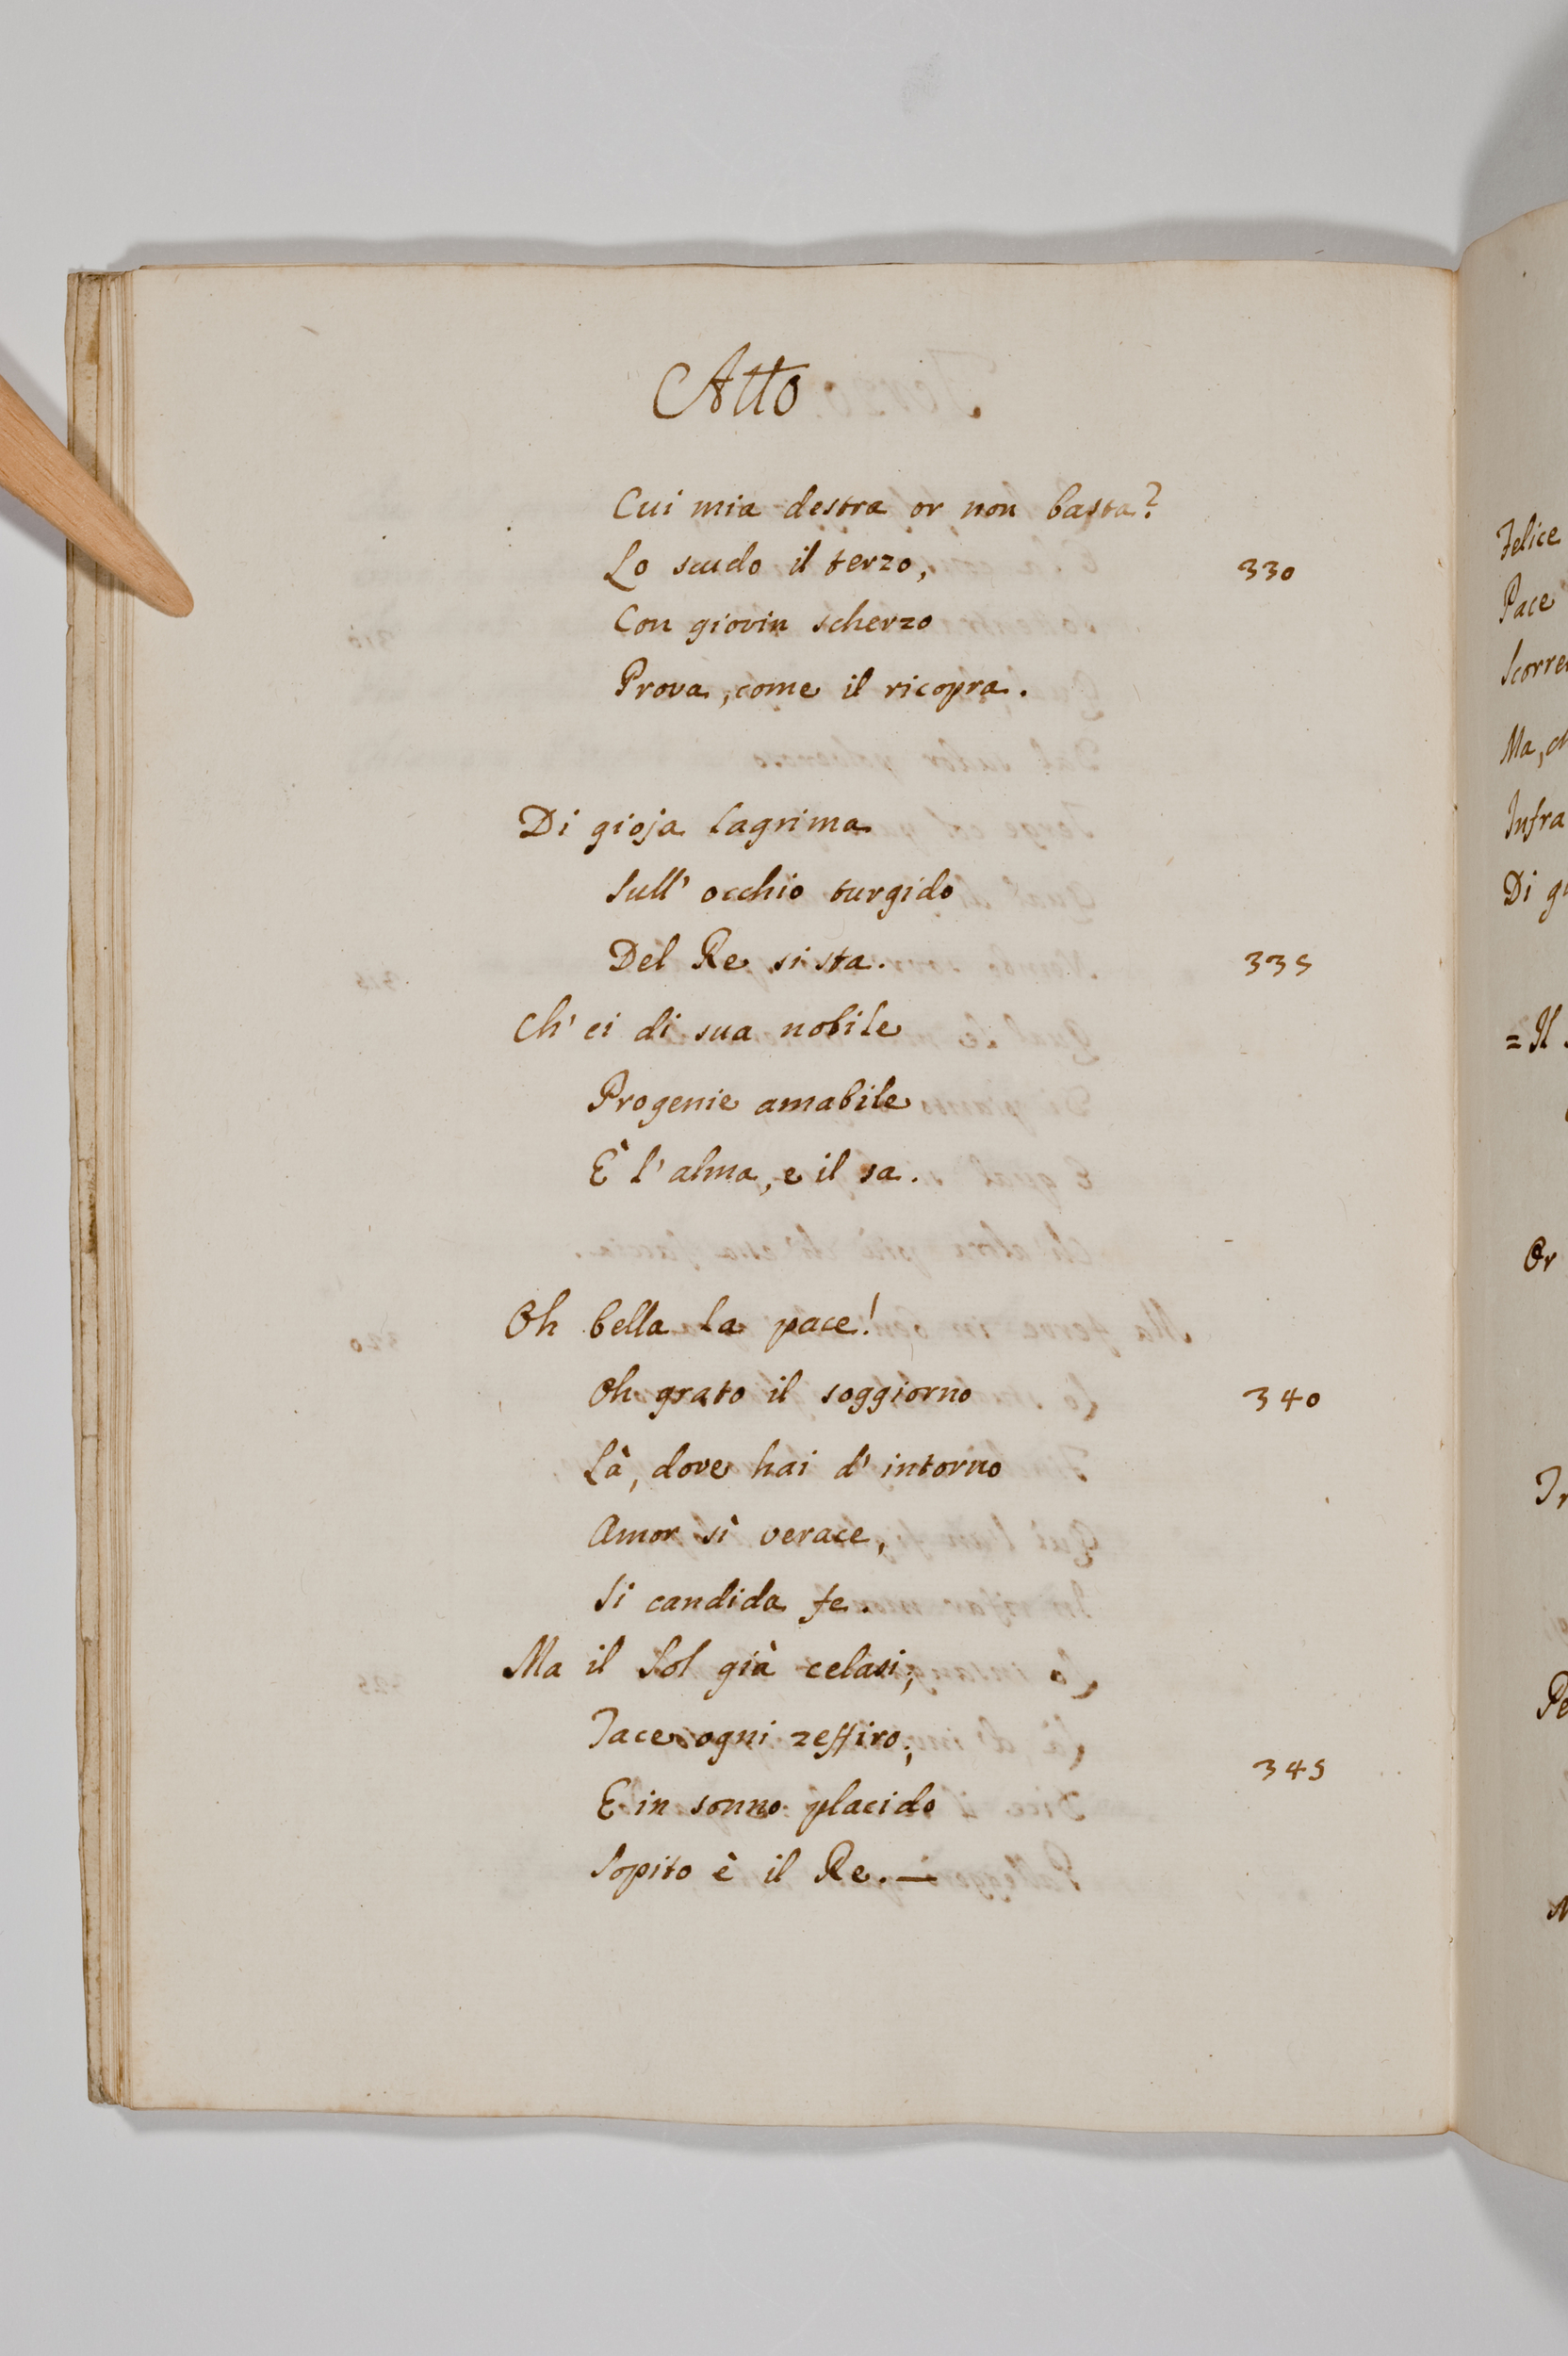 Atto
Cui mia destra or non basta?
Lo scudo il terzo, 330
Con giovin scherzo
Prova, come il ricopra.
Di gioja lagrima
Sull' occhio turgido
Del Re si sta. 335
Ch' ei di sua nobile
Progenie amabile
È l'alma, e il sa.
Oh bella la pace!
Oh grato il soggiorno 340
Là, dove hai d' intorno
Amor sì verace,
Si candida fe.
Ma il Sol già celasi;
Tace ogni zeffiro; 345
E in sonno placido
Sopito è il Re. —
Felice
Pace
Ma,
Infra
Di
= Il
Or